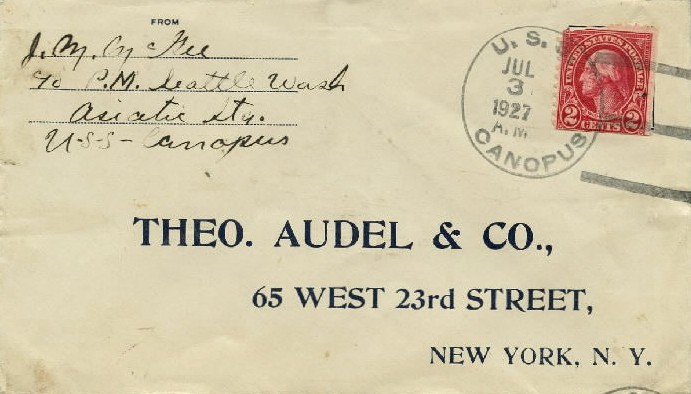 FROM
J. M. Mc Gee
c/o P.M. Seattle Wash
Asiatic Sta.
U-S-S- Canopus
U. S. S.
JUL
3
1927
A.M.
CANOPUS
UNITED STATES POSTAGE
2 CENTS 2
THEO. AUDEL & CO.,
65 WEST 23rd STREET,
NEW YORK, N. Y.